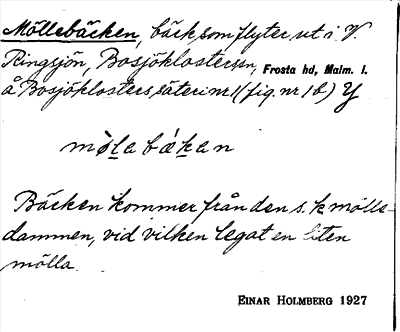 Möllebäcken, bäck som flyter ut i V.
Ringsjön, Bosjökloster sn, Frosta hd, Malm. l.
å Bosjöklosters säteri nr 1 (fig. nr 1 b) Y
mø̀la bák̠an
Bäcken kommer från den s. k. mölle-
dammen, vid vilken legat en liten
mölla.
EINAR HOLMBERG 1927